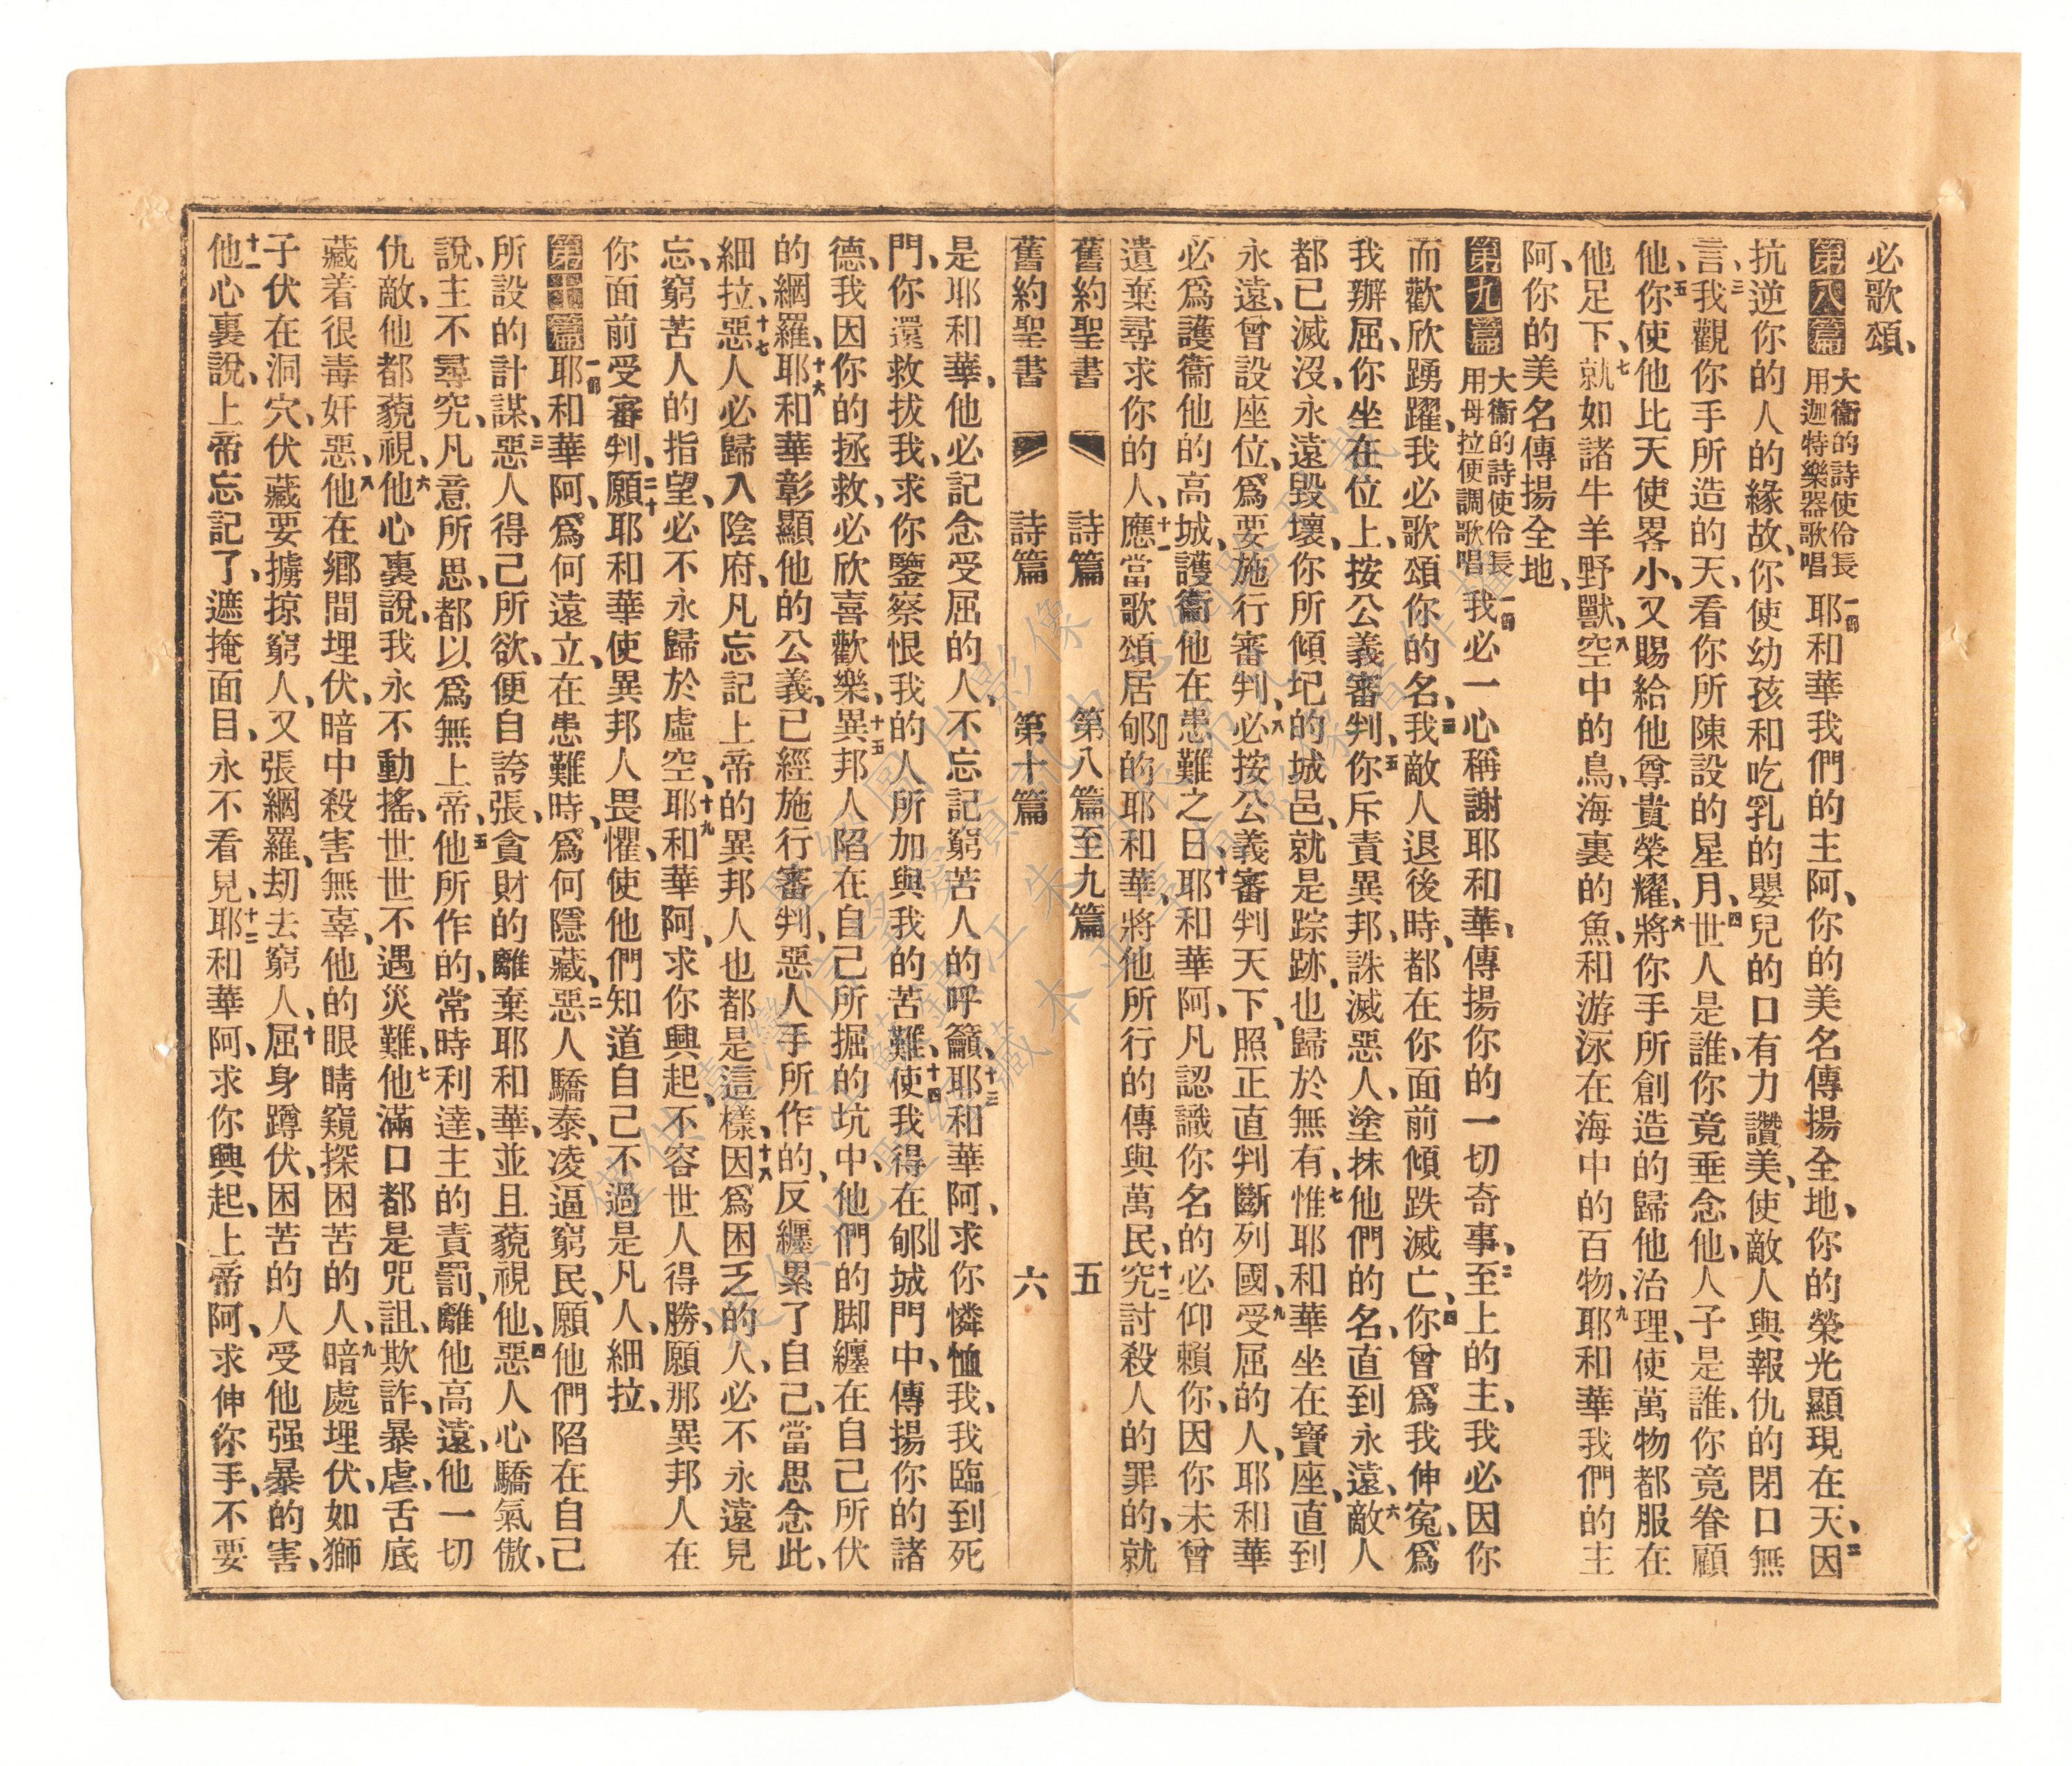 必歌頌、
第八篇 大衞的詩使伶長用迦特樂器歌唱 一節耶和華我們的主阿、你的美名傳揚全地、你的榮光顯現在天、二因
抗逆你的人的緣故、你使幼孩和吃乳的嬰兒的口有力讚美、使敵人與報仇的閉口無
言、三我觀你手所造的天、看你所陳設的星月、四世人是誰、你竟垂念他、人子是誰、你竟眷顧
他、五你使他比天使畧小、又賜給他尊貴榮耀、六將你手所創造的歸他治理、使萬物都服在
他足下、七就如諸牛羊野獸、八空中的鳥、海裏的魚、和游泳在海中的百物、九耶和華我們的主
阿、你的美名傳揚全地、
第九篇 大衞的詩使伶長用母拉便調歌唱 一節我必一心稱謝耶和華、傳揚你的一切奇事、二至上的主、我必因你
而歡欣踴躍、我必歌頌你的名、三我敵人退後時、都在你面前傾跌滅亡、四你曾爲我伸寃、爲
我辦屈、你坐在位上、按公義審判、五你斥責異邦、誅滅惡人、塗抹他們的名、直到永遠、六敵人
都已滅沒、永遠毀壞、你所傾圮的城邑、就是踪跡、也歸於無有、七惟耶和華坐在寶座、直到
永遠、曾設座位、爲要施行審判、八必按公義審判天下、照正直判斷列國、九受屈的人、耶和華
必爲護衞他的高城、護衞他在患難之日、十耶和華阿、凡認識你名的必仰賴你、因你未曾
遺棄尋求你的人、十一應當歌頌居郇的耶和華、將他所行的傳與萬民、十二究討殺人的罪的、就
舊約聖書 詩篇 第八篇至九篇 五
舊約聖書 詩篇 第十篇 六
是耶和華、他必記念受屈的人、不忘記窮苦人的呼籲、十三耶和華阿、求你憐恤我、我臨到死
門、你還救拔我、求你鑒察恨我的人所加與我的苦難、十四使我得在郇城門中、傳揚你的諸
德、我因你的拯救、必欣喜歡樂、十五異邦人陷在自己所掘的坑中、他們的脚纏在自己所伏
的綱羅、十六耶和華彰顯他的公義、已經施行審判、惡人手所作的、反纏累了自己、當思念此、
細拉、十七惡人必歸入陰府、凡忘記上帝的異邦人也都是這樣、十八因爲困乏的人、必不永遠見
忘、窮苦人的指望、必不永歸於虛空、十九耶和華阿、求你興起、不容世人得勝、願那異邦人在
你面前受審判、二十願耶和華使異邦人畏懼、使他們知道自己不過是凡人、細拉、
第十篇 一節耶和華阿、爲何遠立、在患難時、爲何隱藏、二惡人驕泰、凌逼窮民、願他們陷在自己
所設的計謀、三惡人得己所欲、便自誇張、貪財的離棄耶和華、並且藐視他、四惡人心驕氣傲、
說、主不尋究、凡意所思、都以爲無上帝、五他所作的、常時利達、主的責罰、離他高遠、他一切
仇敵、他都藐視、六他心裏說、我永不動搖、世世不遇災難、七他滿口都是咒詛、欺詐、暴虐、舌底
藏着很毒奸惡、八他在鄉間埋伏、暗中殺害無辜、他的眼睛窺探困苦的人、九暗處埋伏、如獅
子伏在洞穴、伏藏要擄掠窮人、又張綱羅、刧去窮人、十屈身蹲伏、困苦的人受他强暴的害、
十一他心裏說、上帝忘記了、遮掩面目、永不看見、十二耶和華阿、求你興起、上帝阿、求伸你手、不要